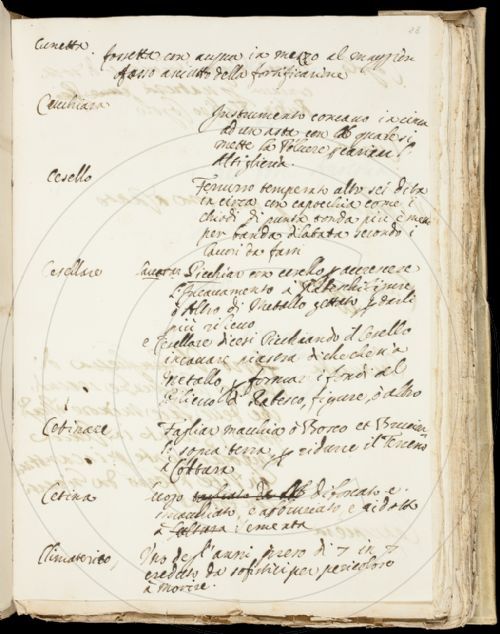 28
Cunetta. fossetta con acqua in mezzo al maggior
fosso asciutto della fortificazione
Cucchiara
Instrumento concavo in cima
ad un asta con il quale si
mette la Polvere per caricar l'
Artiglieria.
Cesello
Ferruzzo temperato alto sei dita
in circa con capocchia come i
chiodi di punta tonda più e meno
per banda dilatata secondo i
lavori da farsi
Cesellare
Picchiar con cesello per accrescere
l'incavamento a Rabeschi, figure
o altro di Metallo gettato per darli
più rilievo
e Cesellare dicesi Picchiando il Cesello
incavare piastra di che che sia
metallo, per formar i fondi al
rilievo di Rabesco, figure, ò altro
Cetinare
Tagliar macchia ò Bosco et Bruciar
la sopra terra, per ridurre il Terreno
à Coltura
Cetina
luogo tagliato da disboscato e
smacchiato, e abbruciato, e ridotto
à Coltura i ementa
Climaterico,
Uno degl'anni preso di 7 in 7
creduto da sofistici per pericoloso
a morire.